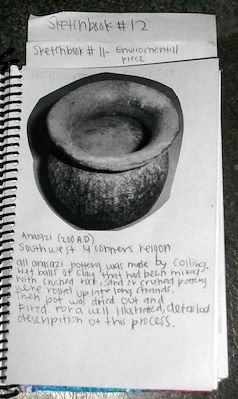 Sketchbook # 12
Sketchbook # 11- Enviromentall
piece
Anasazi (200 A.D)
Southwest 4 corners reigon
all anasazi pottery was made by coiling.
Wet balls of clay that had been mixed
with crushed rock, sand or crushed pottery
were rolled up into long strands.
Then pot was dried out and
Fired for a well illustrated, detailed
description of this process.